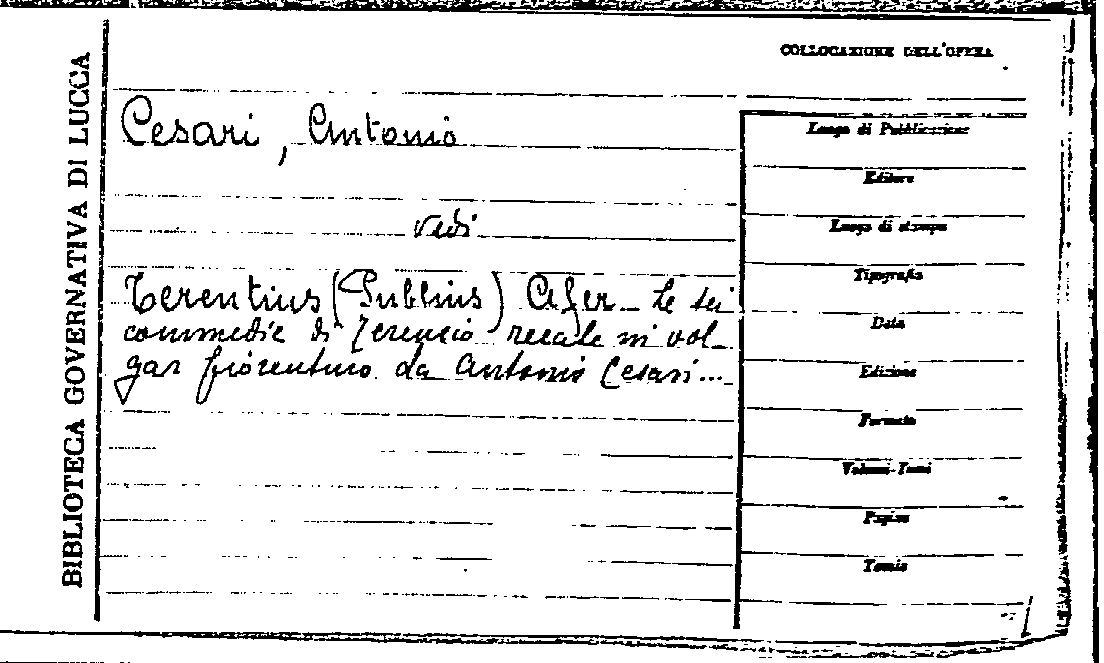 BIBLIOTECA GOVERNATIVA DI LUCCA
COLLOCAZIONE DELL'OPERA
Cesari, Antonio
vedi
Terentius (Publius) Afer – Le sei
commedie di Terenzio recate in vol-
gar fiorentino da Antonio Cesari...
Luogo di Pubblicazione
Editore
Luogo di stampa
Tipografia
Data
Edizione
Formato
Volumi-Tomi
Pagine